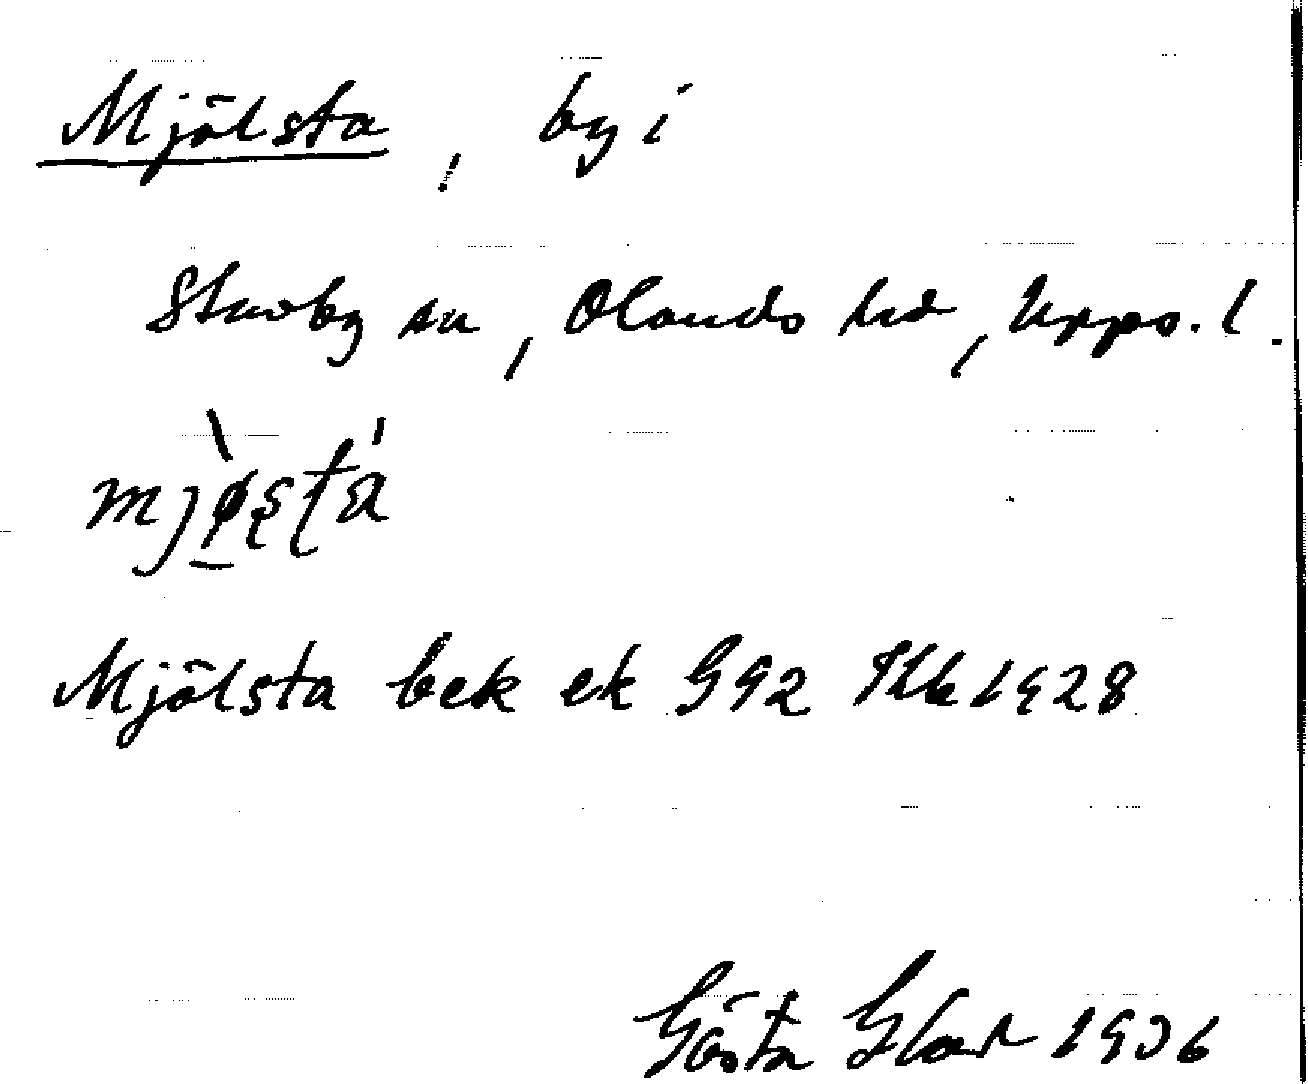 Mjölsta, by i
Stavby sn, Olands hd, Upps. l.
Mjölsta bek ek G92 Kbl 1928
Gösta Glad 1936